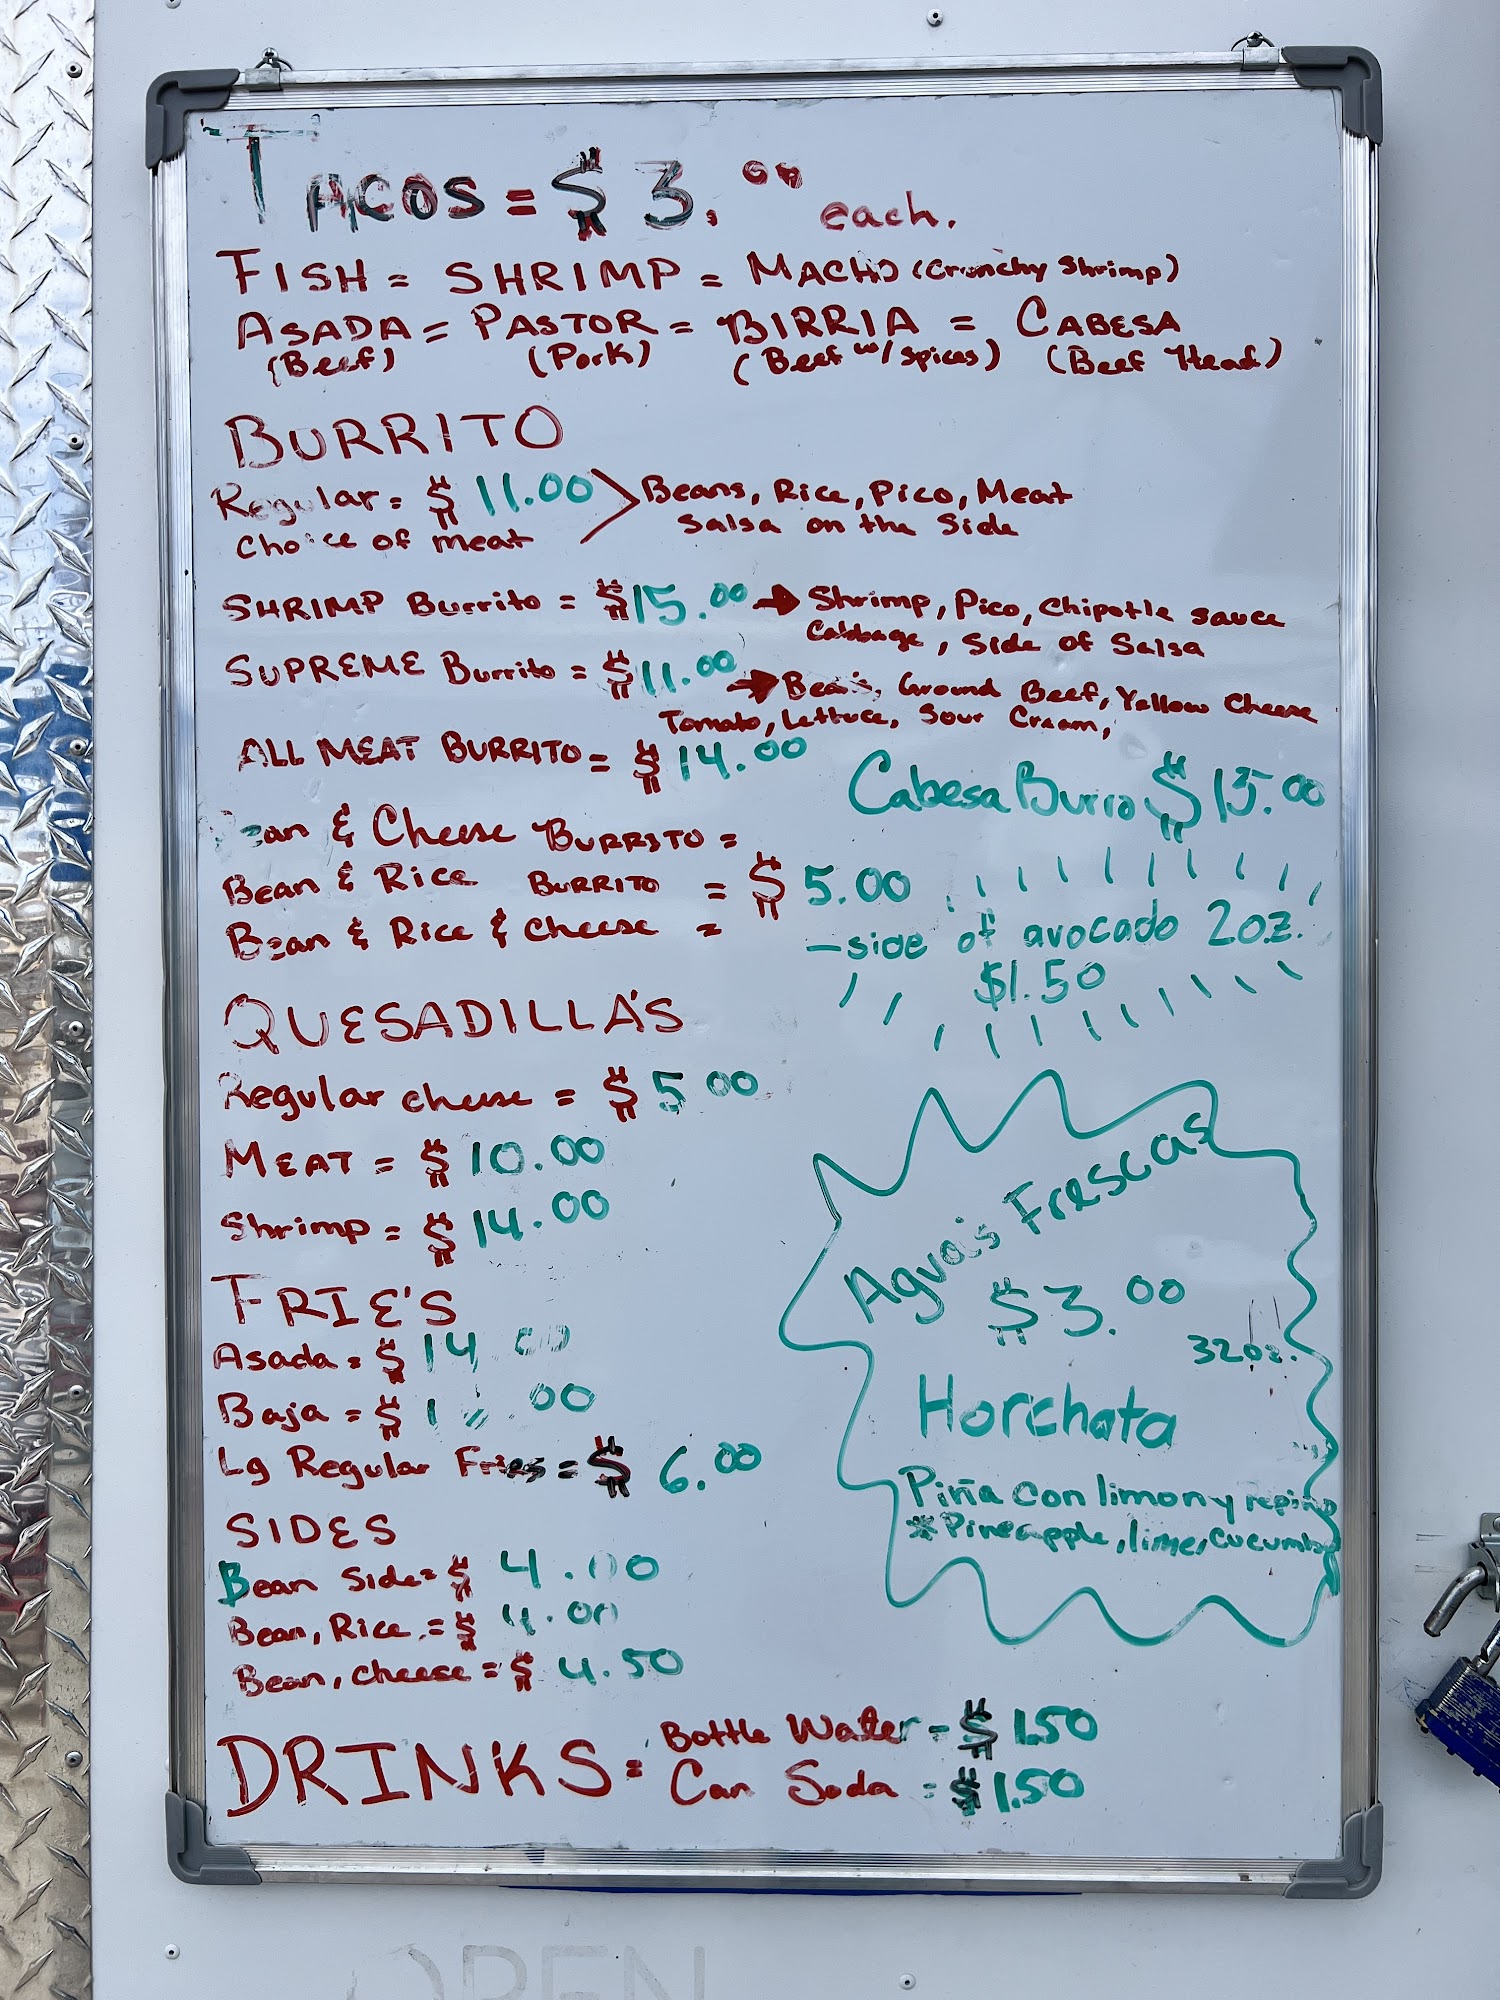 TACOS = $3.00 each.
FISH = SHRIMP = MACHO (Crunchy Shrimp)
ASADA = PASTOR = BIRRIA = CABESA
(Beef) (Pork) (Beef w/ spices) (Beef Head)
BURRITO
Regular = $11.00 > Beans, Rice, Pico, Meat
Choice of meat Salsa on the Side
SHRIMP Burrito = $15.00 → Shrimp, Pico, Chipotle sauce
Cabbage, Side of Salsa
SUPREME Burrito = $11.00 → Bean's, Ground Beef, Yellow Cheese
Tomato, Lettuce, Sour Cream,
ALL MEAT BURRITO = $14.00
Cabesa Burro $15.00
Bean & Cheese BURRITO =
Bean & Rice BURRITO = $5.00
Bean & Rice & Cheese =
-side of avocado 2oz.
$1.50
QUESADILLA'S
Regular cheese = $5 00
MEAT = $10.00
Shrimp = $14.00
FRIE'S
Asada = $14 00
Baja = $ 00
Lg Regular Fries = $6.00
SIDES
Bean Side = $4.00
Bean, Rice, = $4.00
Bean, cheese = $4.50
DRINKS = Bottle Water = $1.50
Can Soda = $1.50
Agua's Frescas
$3.00
32oz.
Horchata
Piña con limon y pepino
*Pineapple, lime, cucumber
OPEN